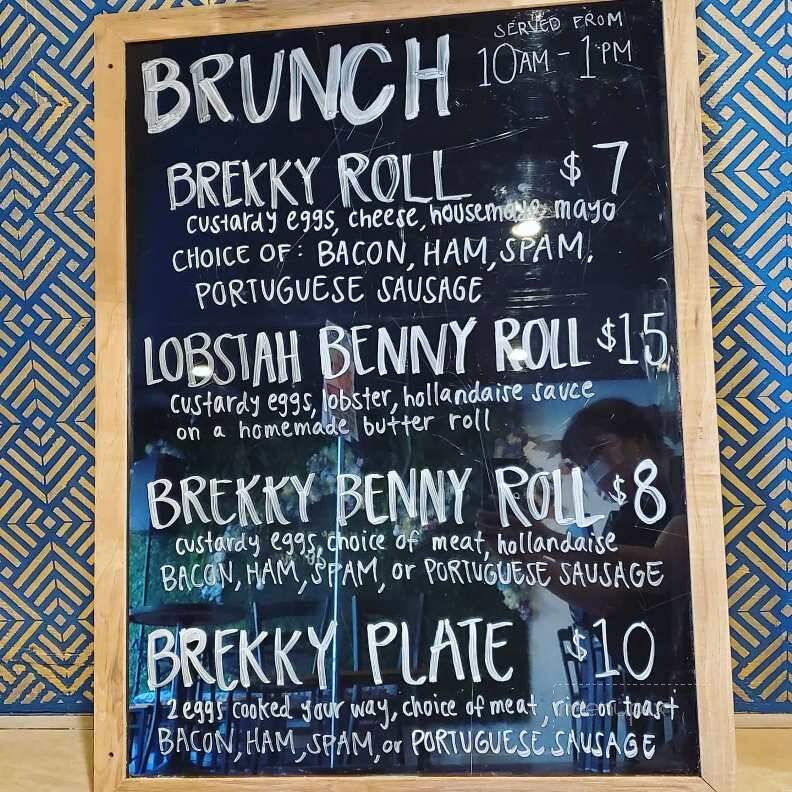 SERVED FROM
BRUNCH 10AM - 1PM
BREKKY ROLL $7
custardy eggs, cheese, housemade mayo
CHOICE OF: BACON, HAM, SPAM,
PORTUGUESE SAUSAGE
LOBSTAH BENNY ROLL $15
custardy eggs, lobster, hollandaise sauce
on a homemade butter roll
BREKKY BENNY ROLL $8
custardy eggs, choice of meat, hollandaise
BACON, HAM, SPAM, or PORTUGUESE SAUSAGE
BREKKY PLATE $10
2 eggs cooked your way, choice of meat, rice or toast
BACON, HAM, SPAM, or PORTUGUESE SAUSAGE